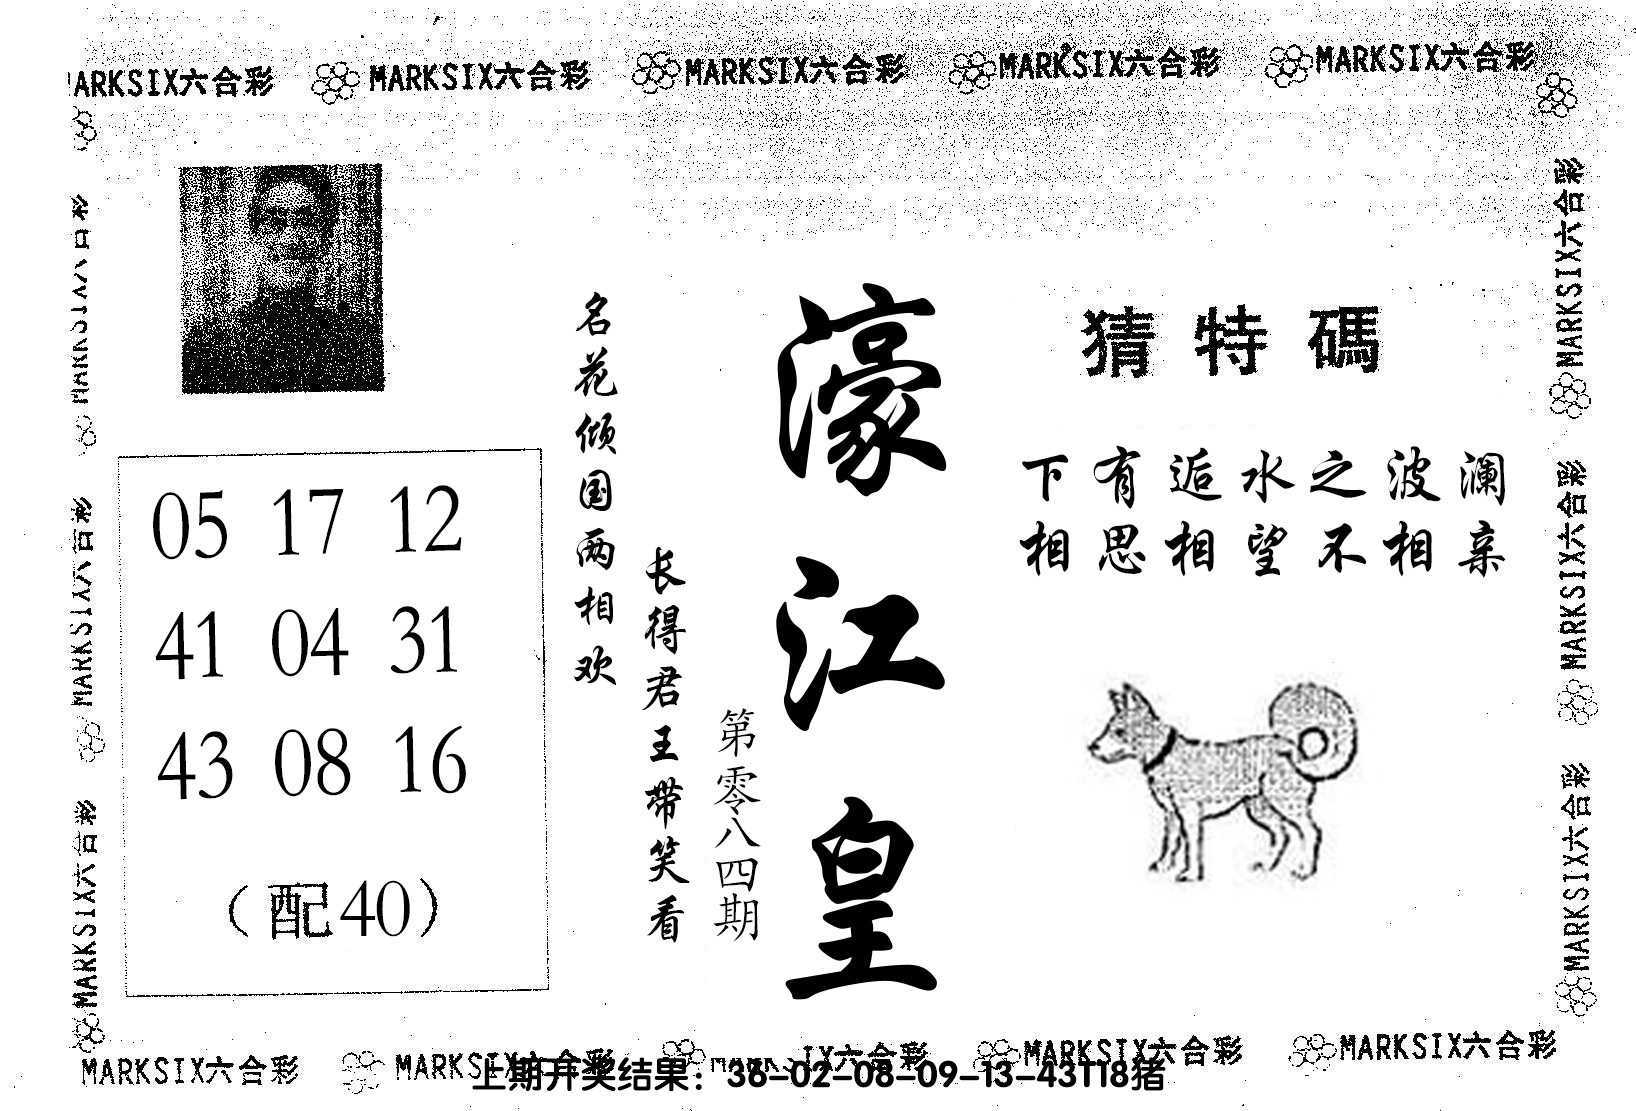 MARKSIX六合彩 MARKSIX六合彩 MARKSIX六合彩 MARKSIX六合彩 MARKSIX六合彩
MARKSIX六合彩
MARKSIX六合彩
MARKSIX六合彩
05 17 12
41 04 31
43 08 16
(配40)
名花倾国两相欢
长得君王带笑看
第零八四期
濠江皇
猜特碼
下有逅水之波澜
相思相望不相亲
MARKSIX六合彩
MARKSIX六合彩
MARKSIX六合彩
MARKSIX六合彩 MARKSIX六合彩 MARKSIX六合彩 MARKSIX六合彩 MARKSIX六合彩
上期开奖结果：36-02-08-09-13-43T18猪